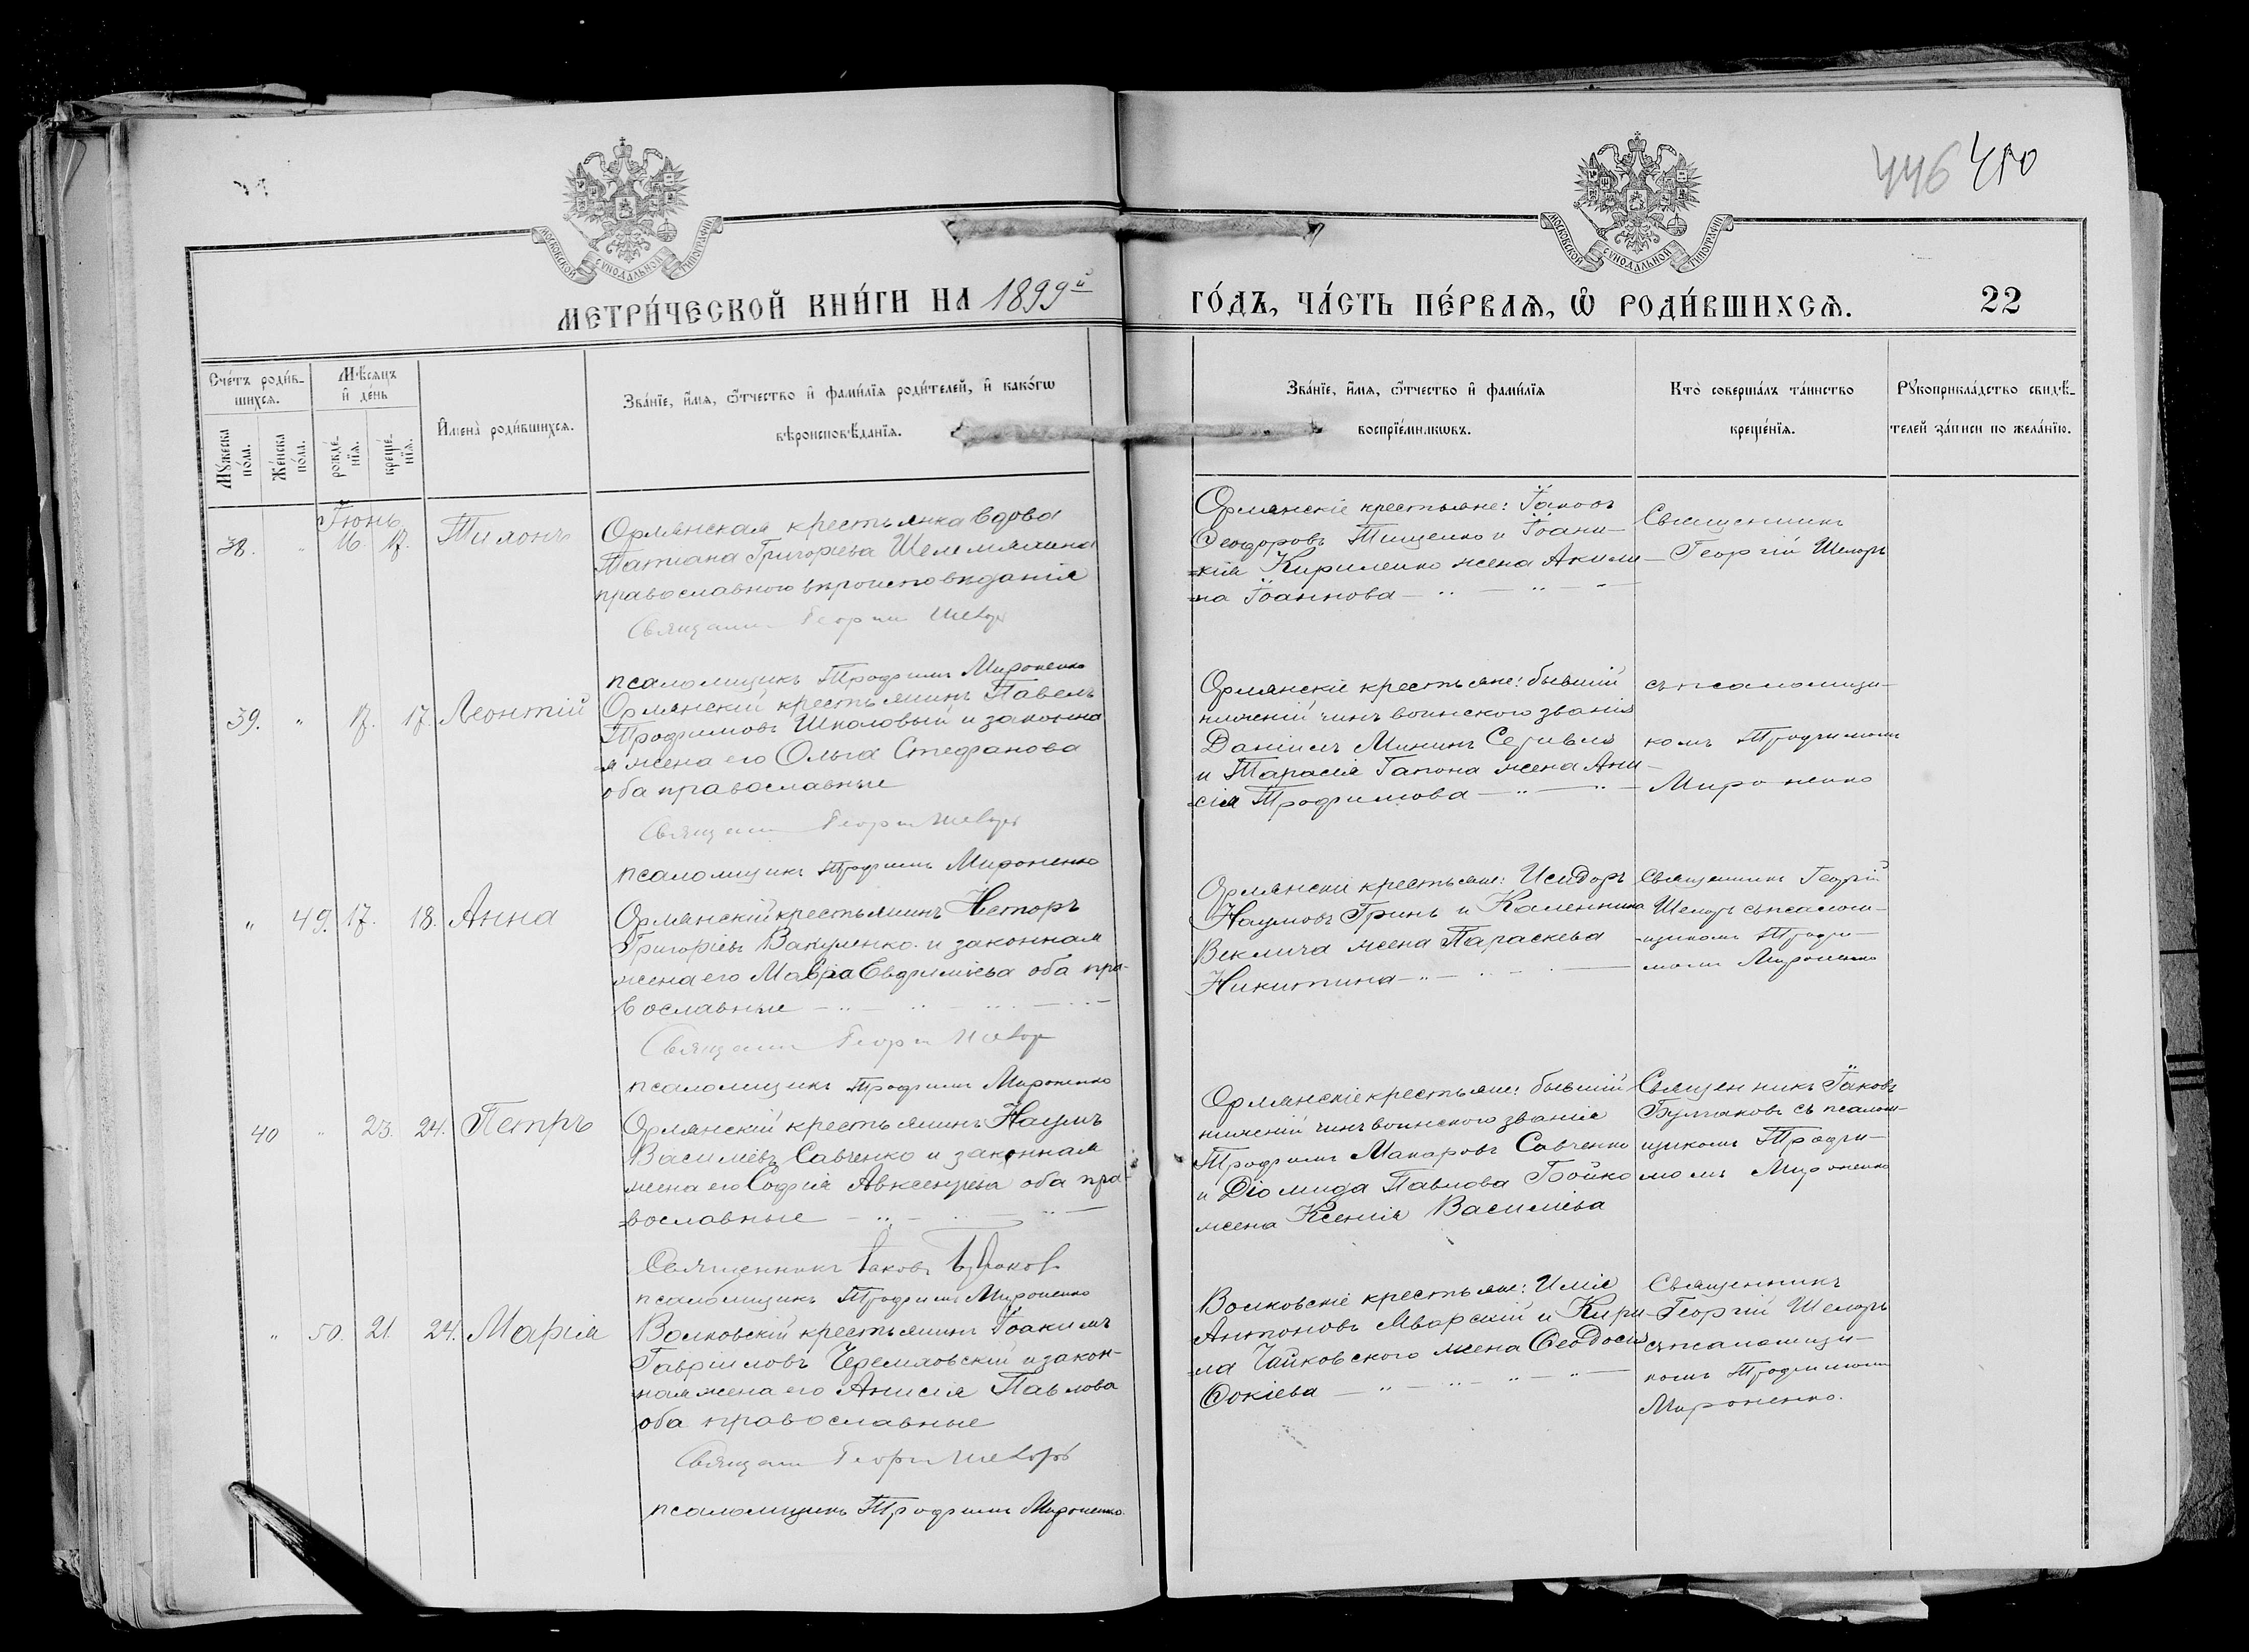 446 450
МОСКОВСКОЙ СѴНОДАЛЬНОЙ ТИПОГРАФІИ
МОСКОВСКОЙ СѴНОДАЛЬНОЙ ТИПОГРАФІИ
МЕТРИ́ЧЕСКОЙ КНИ́ГИ НА 1899й
ГО́ДЪ, ЧА́СТЬ ПЕ́РВАѦ, Ѡ РОДИ́ВШИХСѦ. 22
Сче́тъ роди́в-
шихсѧ.
Мꙋжеска по́ла.
Же́нска по́ла.
Мѣ́сѧцъ и де́нь
рожде́нїѧ.
креще́нїѧ.
Имена̀ роди́вшихсѧ.
Зва́нїе, и́мѧ, ѻ҆́тчество и фами́лїѧ роди́телей, и како́гѡ
вѣроисповѣ́данїѧ.
Зва́нїе, и́мѧ, ѻ҆́тчество и фами́лїѧ
воспрїе́мникѡвъ.
Кто̀ соверша́лъ та́инство
креще́нїѧ.
Рꙋкоприкла́дство свидѣ́-
телей за́писи по жела́нїю.
Іюнь
38. " 16. 17. Тихонъ
Орлянская крестьянка вдова
Татіана Григоріева
православнаго вѣроисповѣданія
Священник Георгий
псаломщикъ Трофимъ Мироненко
Орлянскіе крестьяне: Іаковъ
Ѳеодоровъ Тищенко и Іоани-
=кія Кириленко жена Акили-
=на Іоаннова
Священникъ
Георгій
39. " 17. 17. Леонтій
Орлянскій крестьянинъ Павелъ
Трофимовъ Школовый и законна
=я жена его Ольга Стефанова
оба православные
Священник Георгий
псаломщикъ Трофимъ Мироненко
Орлянскіе крестьяне: бывшій
нижній чинъ воинского званія
Даніилъ Мининъ
и Тарасія Гапона жена Ани-
=сія Трофимова
съ псаломщи-
комъ Трофимомъ
Мироненко
" 49. 17. 18. Анна
Орлянскій крестьянинъ Несторъ
Григоріевъ Вакуленко и законная
жена его Мавра Евфиміева оба пра-
вославные
Священник Георгий
псаломщикъ Трофимъ Мироненко
Орлянскіе крестьяне: Исидоръ
Наумовъ Гринь и Каленника
Веклича жена Параскева
Никитина
Священникъ Георгій
съ псалом-
=щикомъ Трофи-
момъ Мироненко
40 " 23. 24. Петръ
Орлянскій крестьянинъ Наумъ
Василіевъ Савченко и законная
жена его Софія Авксентіева оба пра-
=вославные
Священникъ Іаковъ Булгаковъ
псаломщикъ Трофимъ Мироненко
Орлянскіе крестьяне: бывшій
нижній чинъ воинского званія
Трофимъ Макаровъ Савченко
и Діомида Павлова Бойко
жена Ксенія Василіева
Священникъ Іаковъ
Булгаковъ съ псалом-
щикомъ Трофи-
момъ Мироненко
" 50. 21 24. Марія
Волковскій крестьянинъ Іоакимъ
Гавріиловъ Черемховскій и закон-
ная жена его Анисія Павлова
оба православные
Священник Георгий
псаломщикъ Трофимъ Мироненко.
Волковскіе крестьяне: Илія
Антоновъ Яворскій и Кири-
=ла Чайковского жена Ѳеодосія
Ѳокіева
Священникъ
Георгій
съ псаломщи-
комъ Трофимомъ
Мироненко.